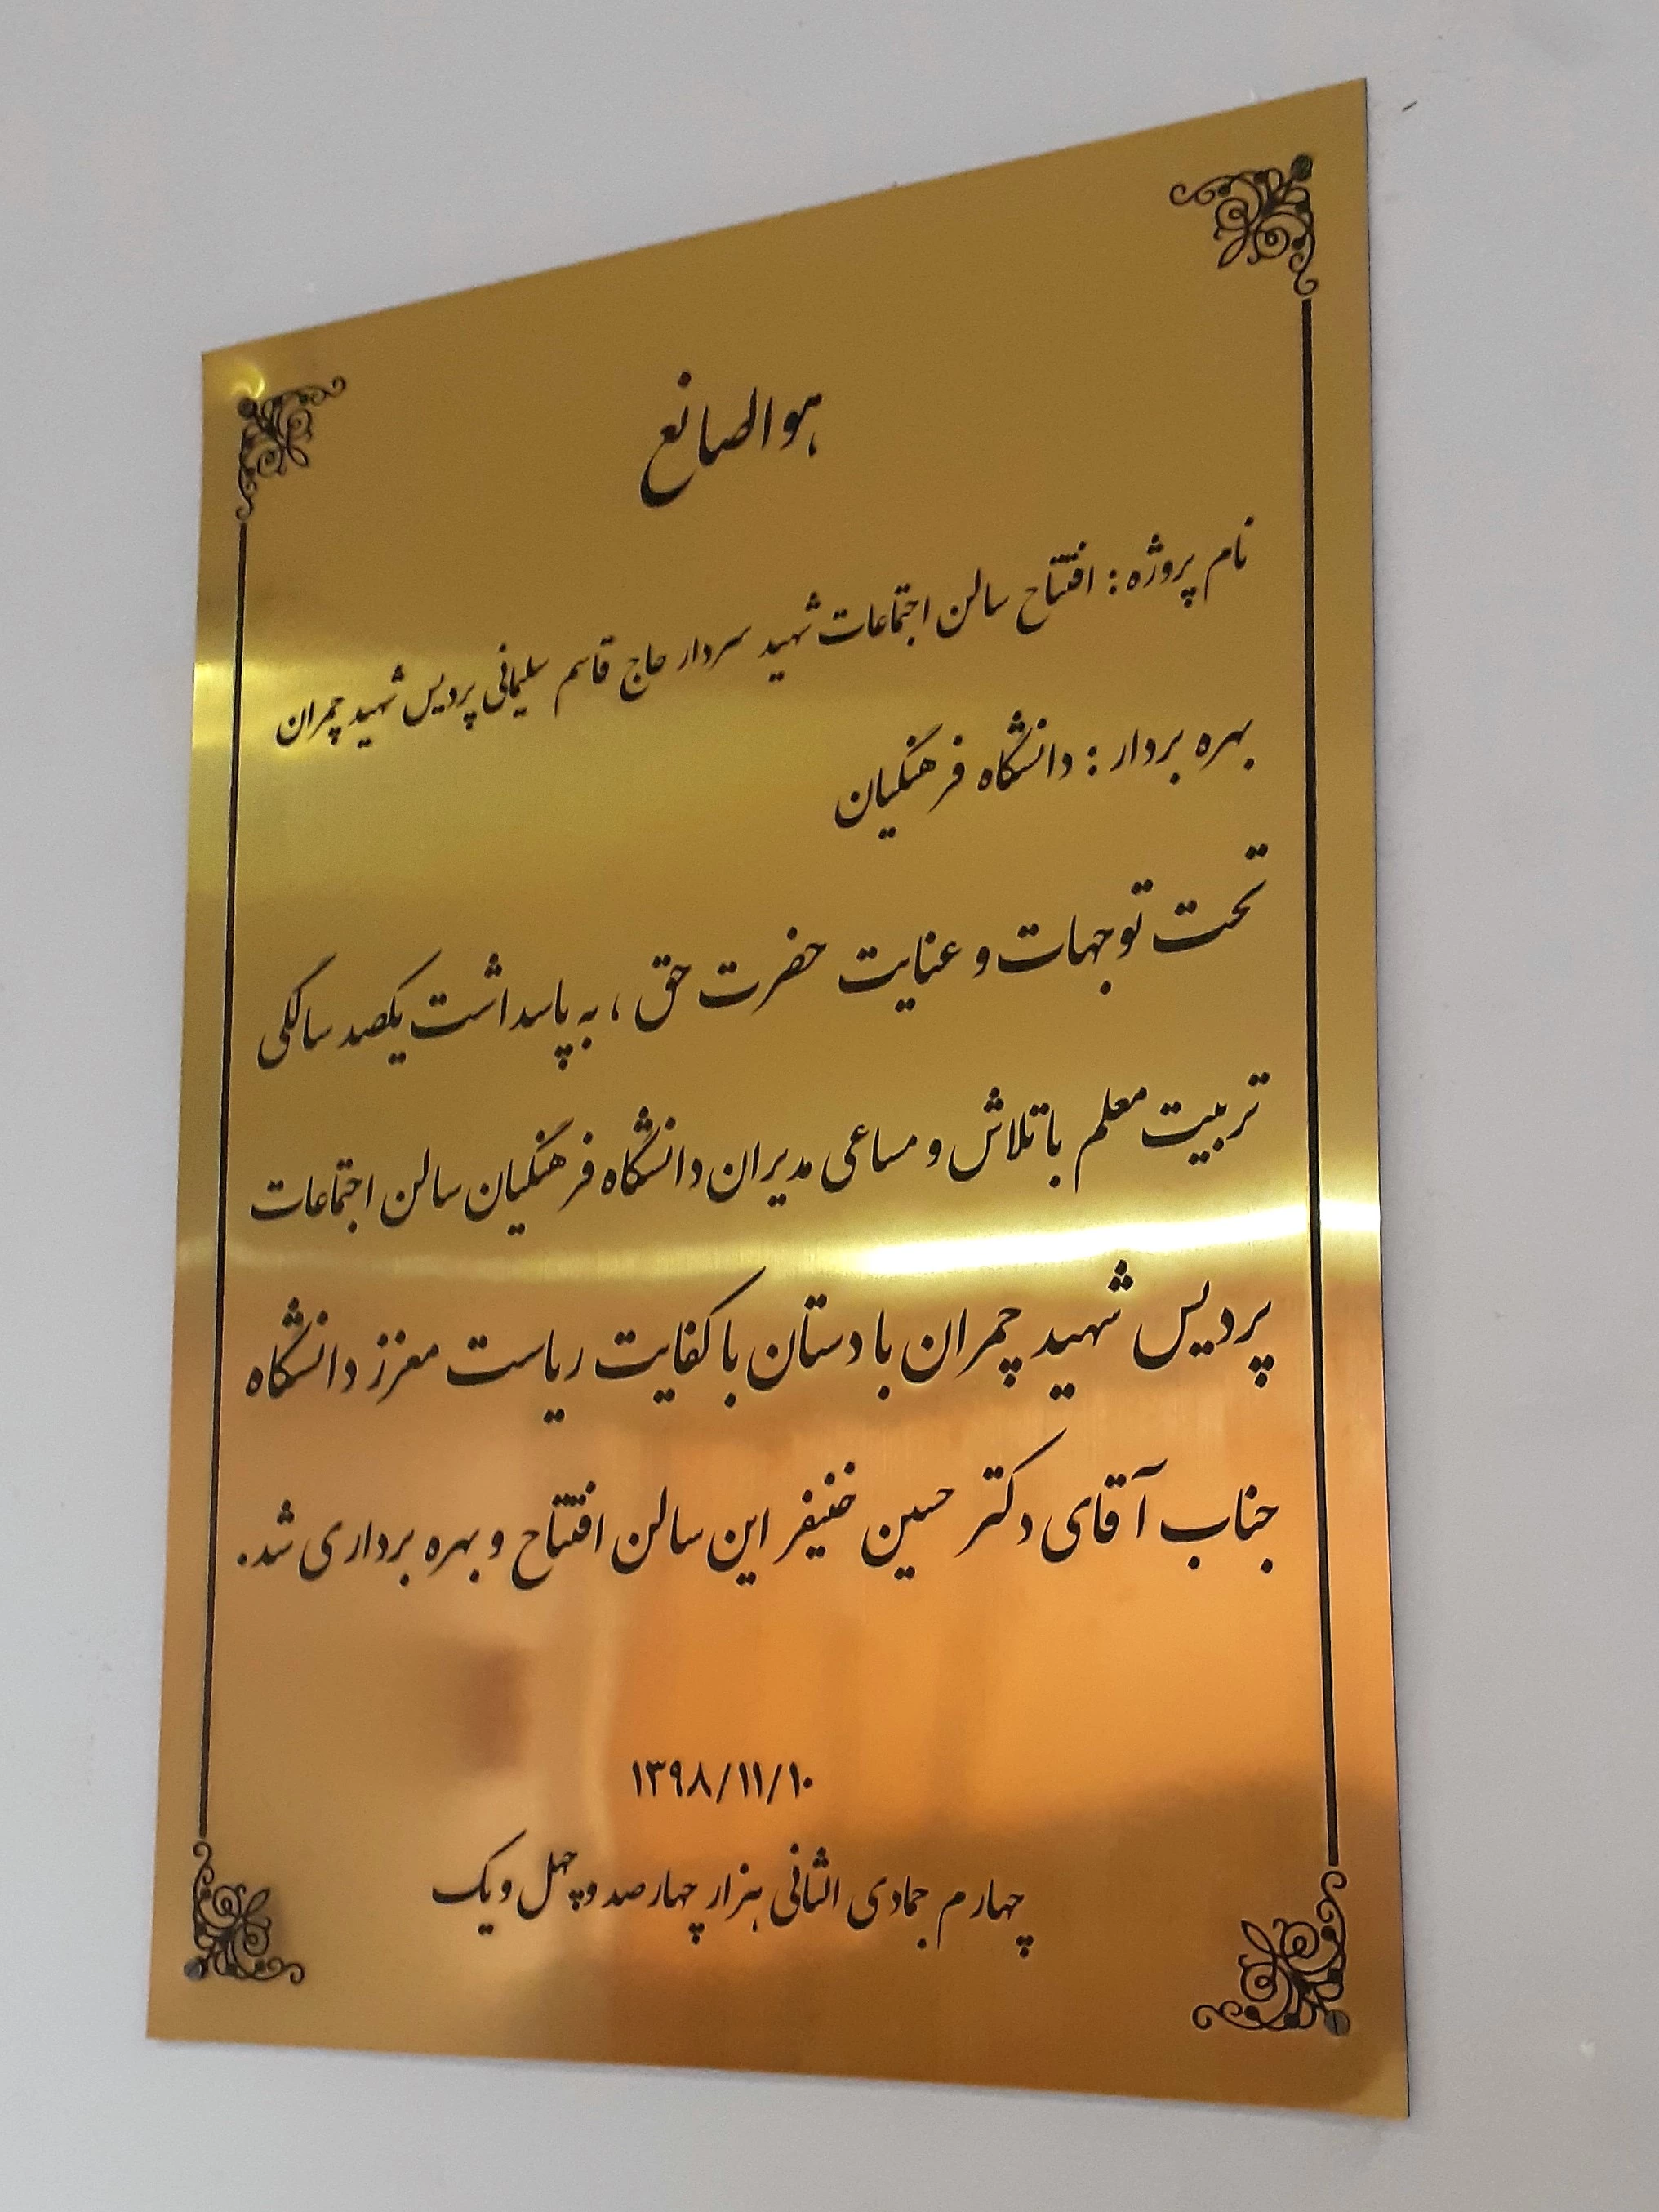 هوالصانع
نام پروژه : افتتاح سالن اجتماعات شهید سردار حاج قاسم سلیمانی پردیس شهید چمران
بهره بردار : دانشگاه فرهنگیان
تحت توجهات و عنایت حضرت حق ، به پاسداشت یکصد سالگی
تربیت معلم با تلاش و مساعی مدیران دانشگاه فرهنگیان سالن اجتماعات
پردیس شهید چمران با دستان با کفایت ریاست معزز دانشگاه
جناب آقای دکتر حسین خنیفر این سالن افتتاح و بهره برداری شد.
۱۳۹۸/۱۱/۱۰
چهارم جمادی الثانی هزار چهارصد و چهل و یک